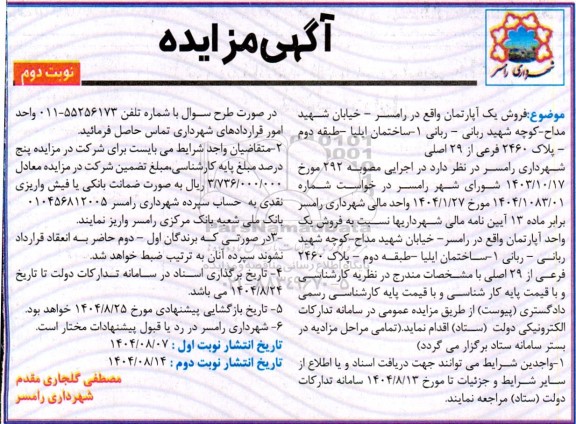 آگهی مزایده
نوبت دوم
شهرداری رامسر
موضوع:فروش یک آپارتمان واقع در رامسر - خیابان شهید
مداح-کوچه شهید ربانی - ربانی ۱-ساختمان ایلیا -طبقه دوم
- پلاک ۲۴۶۰ فرعی از ۲۹ اصلی
شهرداری رامسر در نظر دارد در اجرایی مصوبه ۲۹۳ مورخ
۱۴۰۳/۱۰/۱۷ شورای شهر رامسر در خواست شماره
۱۴۰۴/۱۰۸۳/۰۱ مورخ ۱۴۰۴/۱/۲۷ واحد مالی شهرداری رامسر
برابر ماده ۱۳ آیین نامه مالی شهرداریها نسبت به فروش یک
واحد آپارتمان واقع در رامسر- خیابان شهید مداح-کوچه شهید
ربانی - ربانی ۱-ساختمان ایلیا -طبقه دوم - پلاک ۲۴۶۰
فرعی از ۲۹ اصلی با مشخصات مندرج در نظریه کارشناسی
و با قیمت پایه کار شناسی و با قیمت پایه کارشناسی رسمی
دادگستری (پیوست) از طریق مزایده عمومی در سامانه تدارکات
الکترونیکی دولت (ستاد) اقدام نماید.(تمامی مراحل مزایده در
بستر سامانه ستاد برگزار می گردد)
۱-واجدین شرایط می توانند جهت دریافت اسناد و یا اطلاع از
سایر شرایط و جزئیات تا مورخ ۱۴۰۴/۸/۱۳ سامانه تدارکات
دولت (ستاد) مراجعه نمایند.
در صورت طرح سوال با شماره تلفن ۵۵۲۵۶۱۷۳-۰۱۱ واحد
امور قراردادهای شهرداری تماس حاصل فرمائید.
۲-متقاضیان واجد شرایط می بایست برای شرکت در مزایده پنج
درصد مبلغ پایه کارشناسی،مبلغ تضمین شرکت در مزایده معادل
۳/۷۳۶/۰۰۰/۰۰۰ ریال به صورت ضمانت بانکی یا فیش واریزی
نقدی به حساب سپرده شهرداری رامسر ۰۱۰۴۵۶۸۱۳۰۰۵
بانک ملی شعبه بانک مرکزی رامسر واریز نمایند.
۳-در صورتی که برندگان اول - دوم حاضر به انعقاد قرارداد
نشوند سپرده آنان به ترتیب ضبط خواهد شد.
۴- تاریخ برگذاری اسناد در سامانه تدارکات دولت تا تاریخ
۱۴۰۴/۸/۲۴ می باشد.
۵- تاریخ بازگشایی پیشنهادی مورخ ۱۴۰۴/۸/۲۵ خواهد بود.
۶- شهرداری رامسر در رد یا قبول پیشنهادات مختار است.
تاریخ انتشار نوبت اول : ۱۴۰۴/۰۸/۰۷
تاریخ انتشار نوبت دوم : ۱۴۰۴/۰۸/۱۴
مصطفی گلجاری مقدم
شهرداری رامسر